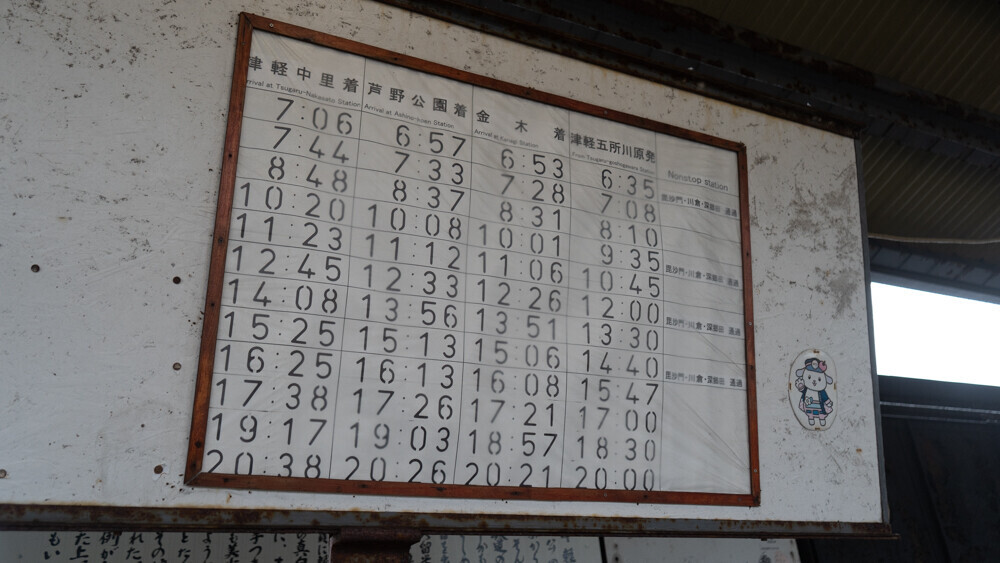 津軽中里着 芦野公園着 金木着 津軽五所川原発
Arrival at Tsugaru-Nakasato Station Arrival at Ashino-koen Station Arrival at Kanagi Station From Tsugaru-goshogawara Station Nonstop station
7:06 6:57 6:53 6:35
7:44 7:33 7:28 7:08 毘沙門・川倉・深郷田 通過
8:48 8:37 8:31 8:10
10:20 10:08 10:01 9:35
11:23 11:12 11:06 10:45 毘沙門・川倉・深郷田 通過
12:45 12:33 12:26 12:00
14:08 13:56 13:51 13:30 毘沙門・川倉・深郷田 通過
15:25 15:13 15:06 14:40
16:25 16:13 16:08 15:47 毘沙門・川倉・深郷田 通過
17:38 17:26 17:21 17:00
19:17 19:03 18:57 18:30
20:38 20:26 20:21 20:00